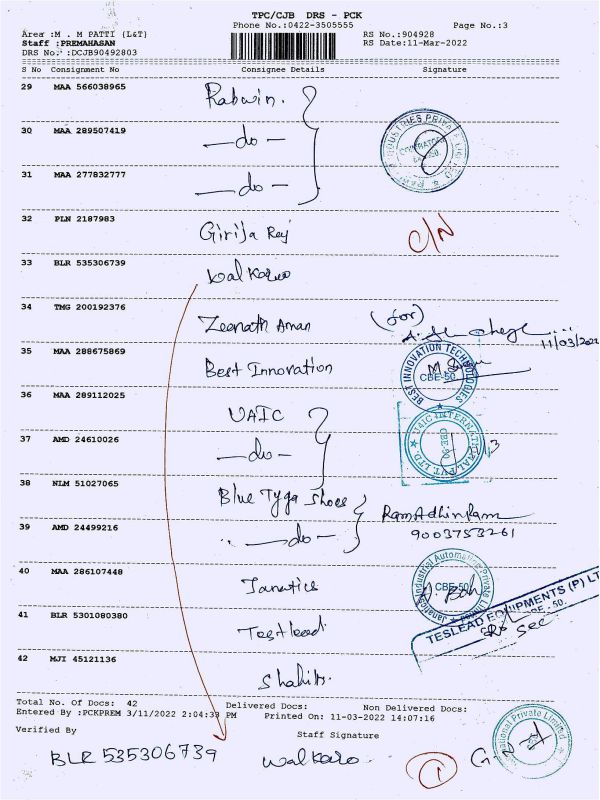 TPC/CJB DRS - PCK
Phone No.:0422-3505555 Page No.:3
Area :M . M PATTI (L&T) RS No.:904928
Staff :PREMAHASAN RS Date:11-Mar-2022
DRS No.:DCJB90492803
S No Consignment No Consignee Details Signature
29 MAA 566038965 Rabwin.
30 MAA 289507419 —do—
31 MAA 277832777 —do—
32 PLN 2187983 Girija Raj C/N
33 BLR 535306739 Walkaroo
34 TMG 200192376 Zeenath Aman (for)
11/03/202
35 MAA 288675869 Best Innovation
BEST INNOVATION TECHNOLOGIES
CBE-50
36 MAA 289112025 UAIC
37 AMD 24610026 —do—
INTERNATIONAL PVT. LTD.
CBE-50
38 NLM 51027065 Blue Tyga Shoes
RamAdhinRam
39 AMD 24499216 —do— 9003753261
40 MAA 286107448 Janatics
Janatics Industrial Automation Private Limited
CBE-50
41 BLR 5301080380 Teslead
TESLEAD EQUIPMENTS (P) LT
CBE - 50.
42 MJI 45121136
Total No. Of Docs: 42 Delivered Docs: Non Delivered Docs:
Entered By :PCKPREM 3/11/2022 2:04:33 PM Printed On: 11-03-2022 14:07:16
Verified By Staff Signature
BLR 535306739 Walkaroo 1
Private Limited